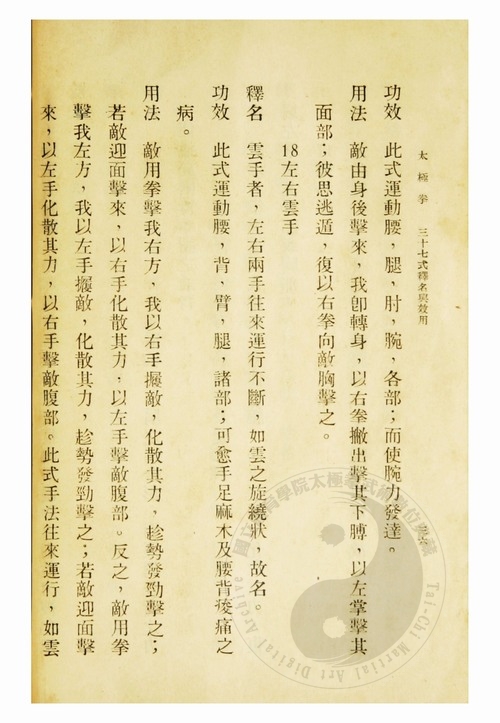 太極拳　三十七式釋名與效用
功效　此式運動腰，腿，肘，腕，各部；而使腕力發達。
用法　敵由身後擊來，我卽轉身，以右拳撇出擊其下膊，以左掌擊其
面部；彼思逃遁，復以右拳向敵胸擊之。
18左右雲手
釋名　雲手者，左右兩手往來運行不斷，如雲之旋繞狀，故名。
功效　此式運動腰，背，臂，腿，諸部；可愈手足麻木及腰背痠痛之
病。
用法　敵用拳擊我右方，我以右手擺敵，化散其力，趁勢發勁擊之；
若敵迎面擊來，以右手化散其力，以左手擊敵腹部。反之，敵用拳
擊我左方，我以左手擺敵，化散其力，趁勢發勁擊之；若敵迎面擊
來，以左手化散其力，以右手擊敵腹部。此式手法往來運行，如雲
Tai-Chi Martial Art Digital Archive